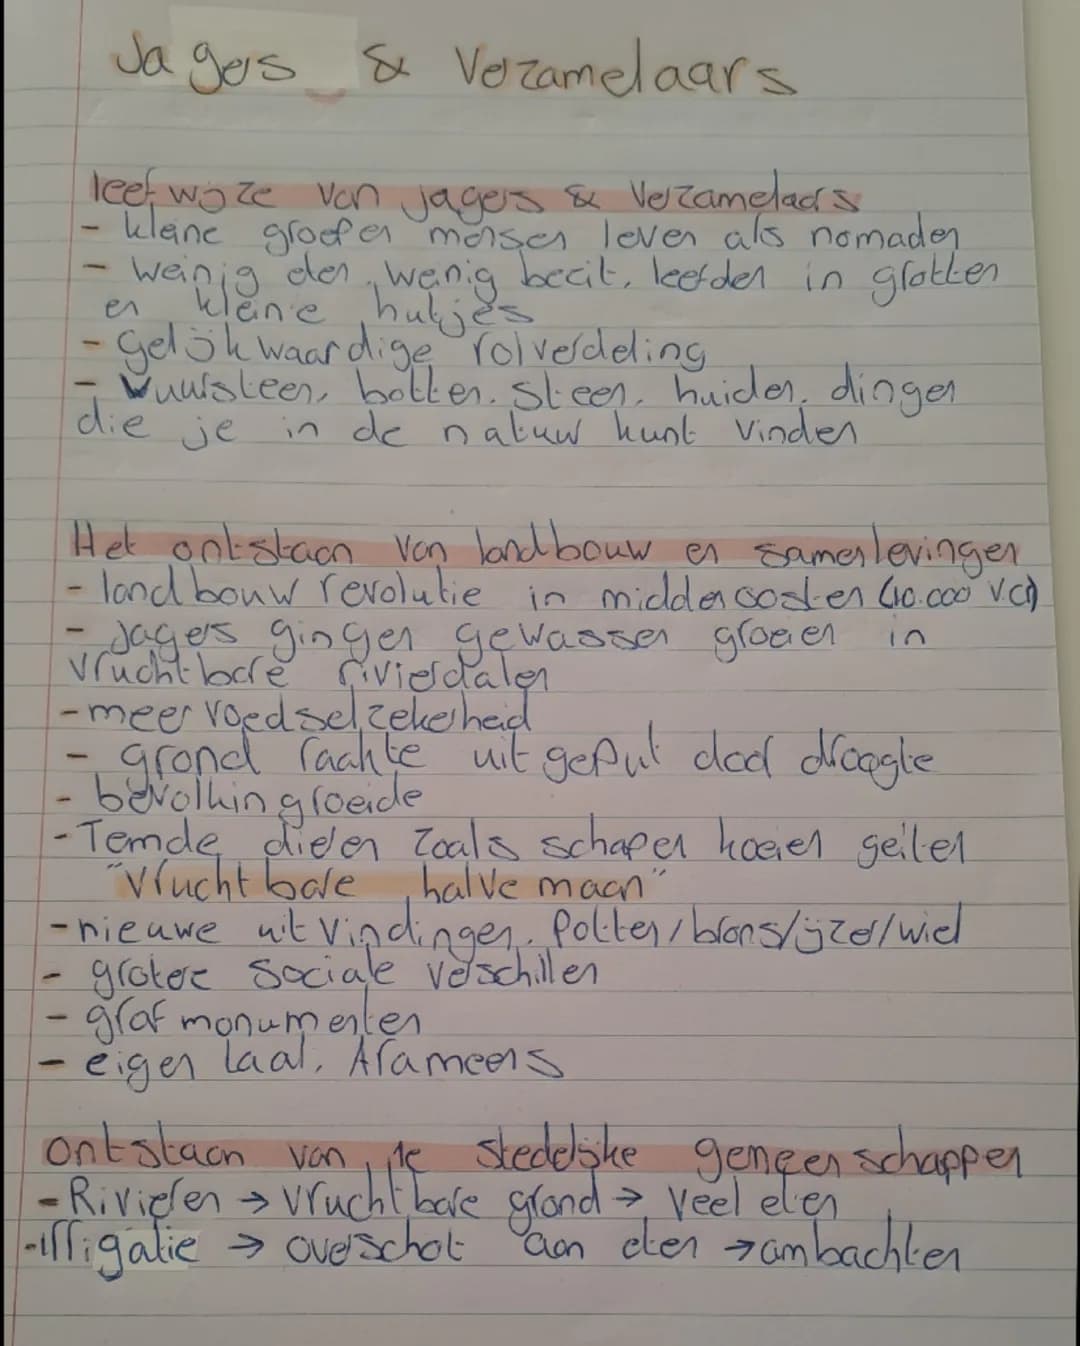 Jagers & Verzamelaars
leefwijze van jagers & Verzamelaars
- kleine groepen mensen leven als nomaden
- weinig eten, weinig bezit, leefden in grotten
en kleine hutjes
- gelijkwaardige rolverdeling
- Vuursteen, botten, steen, huiden, dingen
die je in de natuur kunt vinden
Het ontstaan van landbouw en samenlevingen
- landbouw revolutie in midden oosten (10.000 v.c)
- jagers gingen gewassen groeien in
vruchtbare rivierdalen
- meer voedselzekerheid
- grond raakte uitgeput door droogte
- bevolking groeide
- Temde dieren zoals schapen koeien geiten
"vruchtbare halve maan"
- nieuwe uitvindingen, potten/brons/ijzer/wiel
- grotere sociale verschillen
- graf monumenten
- eigen taal, Arameers
ontstaan van de stedelijke gemeenschappen
- Rivieren → vruchtbare grond → veel eten
- irrigatie → overschot aan eten → ambachten